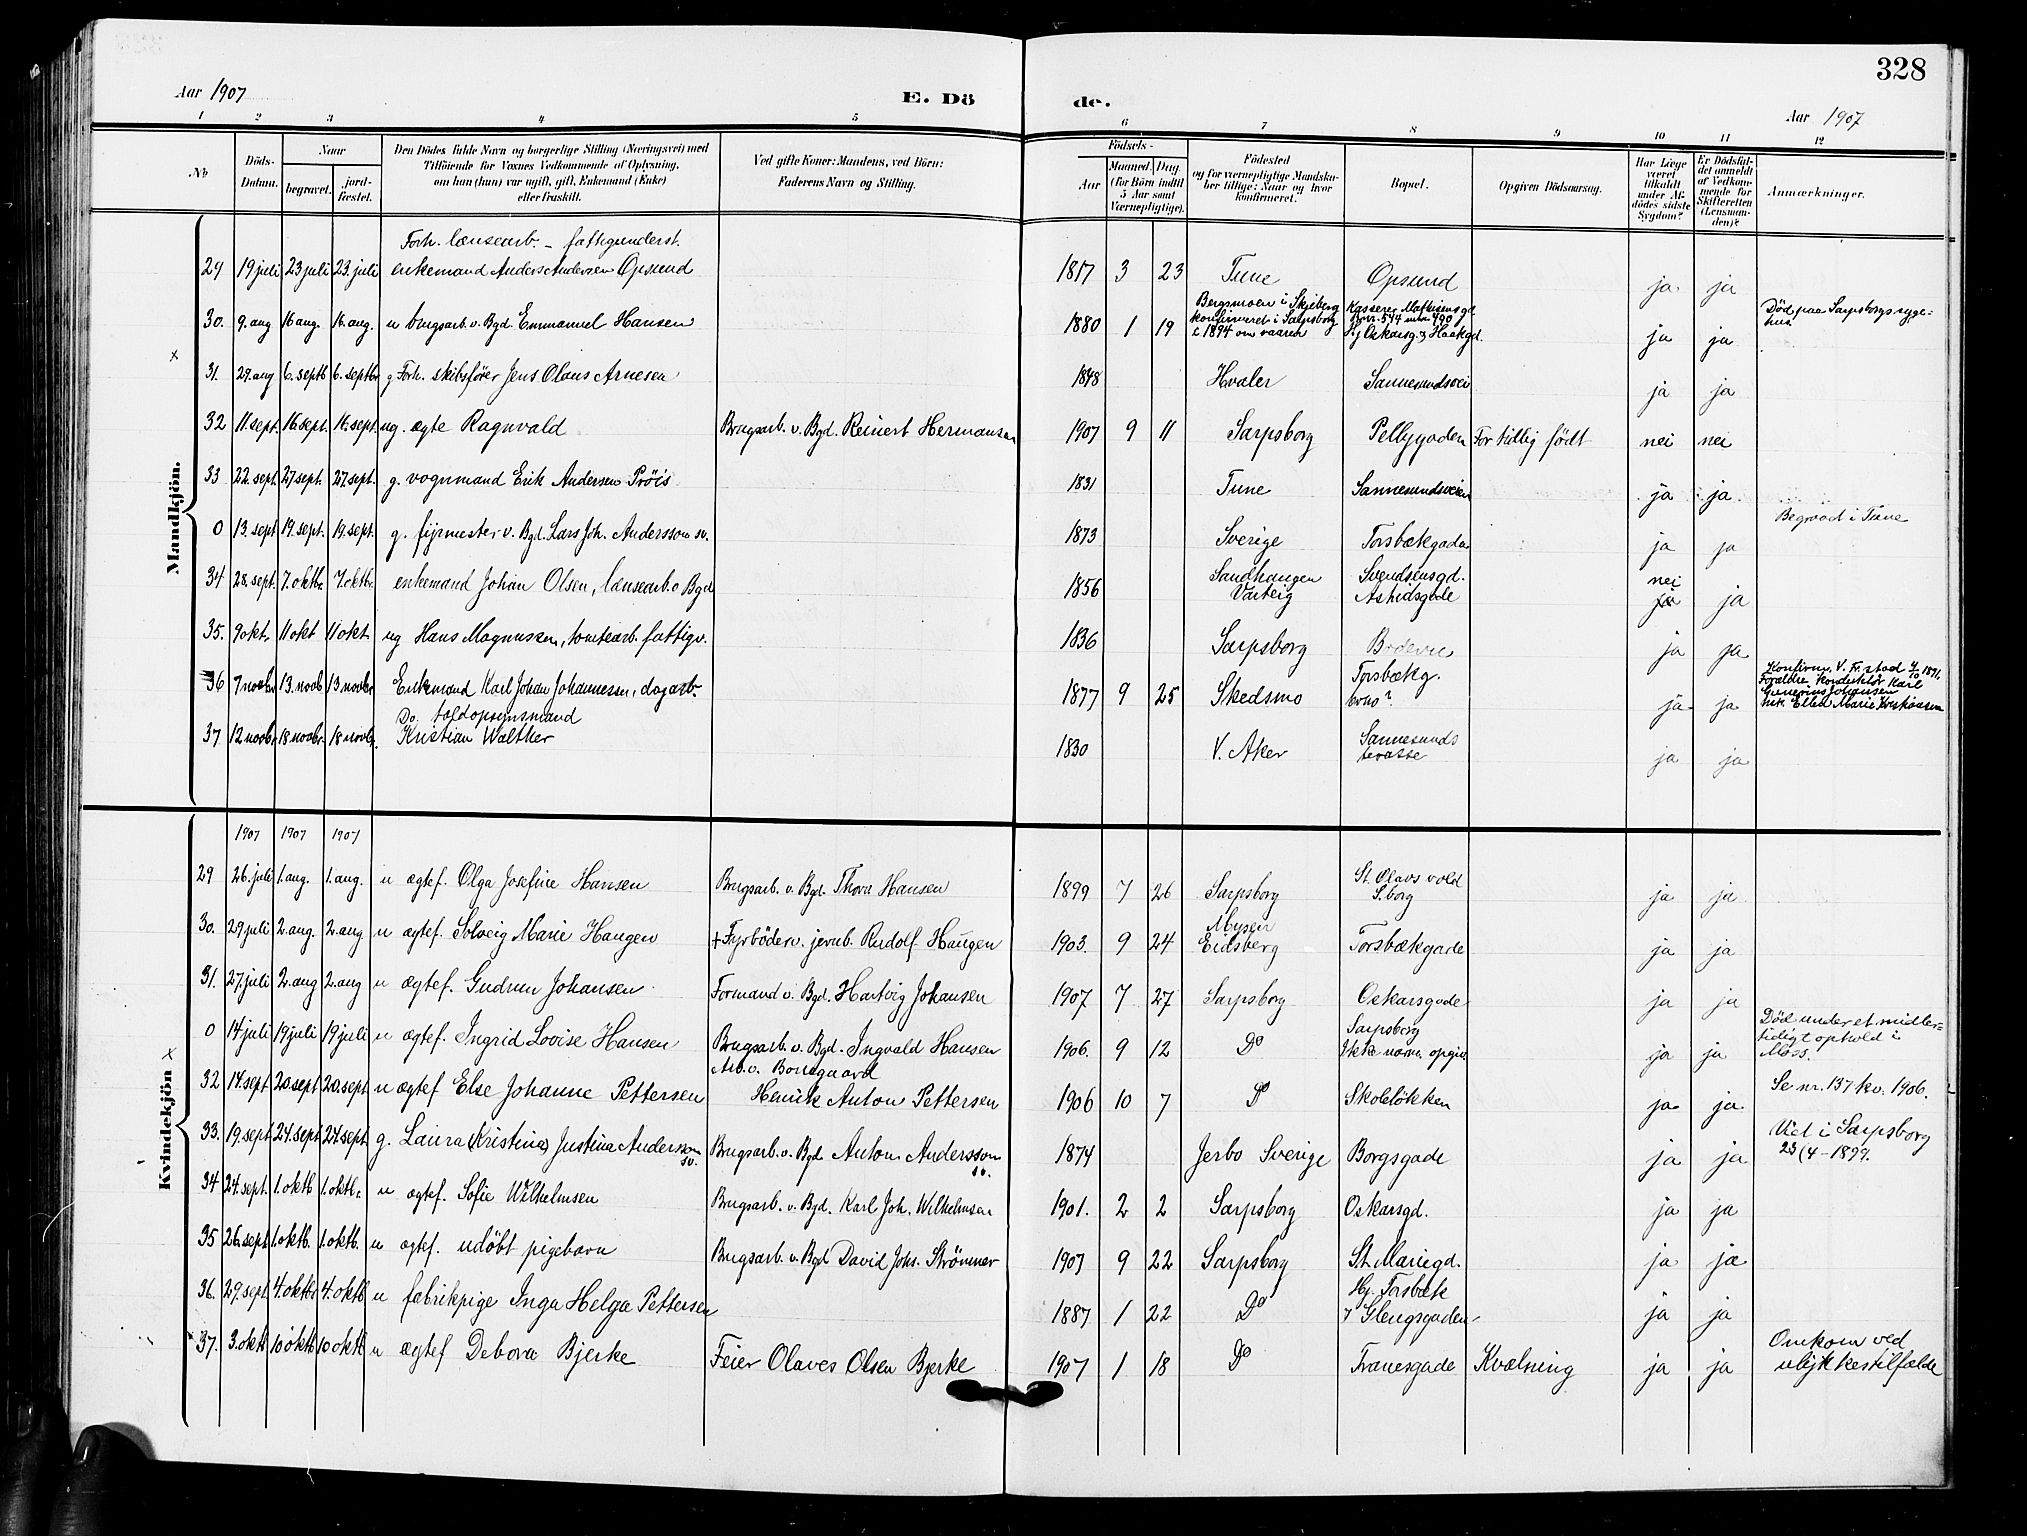 328
Aar 1907
E. Dö
de.
Aar 1907
1 2 3 4 5 6 7 8 9 10 11 12
No
Döds-Datum.
Naar
begravet.
jord-fæstet.
Den Dödes fulde Navn og borgerlige Stilling (Næringsvei) med
Tilföiende for Voxnes Vedkommende af Oplysning,
om han (hun) var ugift, gift, Enkemand (Enke)
eller fraskilt.
Ved gifte Koner: Mandens, ved Börn:
Faderens Navn og Stilling.
Födsels-
Aar
Maaned. Dag.
(for Börn indtil
5 Aar samt
Værnepligtige).
Födested
og for værnepligtige Mandska-
ber tillige: Naar og hvor
konfirmeret.
Bopæl.
Opgiven Dödsaarsag.
Har Læge
været
tilkaldt
under Af-
dödes sidste
Sygdom?
Er Dödsfal-
det anmeldt
af Vedkom-
mende for
Skifteretten
(Lensman-
den)?
Anmærkninger.
Mandkjön.
Forh. lænsearb. - fattigunderst.
29 19 juli 23 juli 23. juli enkemand Anders Andersen Opsund 1817 3 23 Tune Opsund ja ja
30. 9. aug 16 aug. 16. aug. u brugsarb. v. Bgd. Emmanuel Hansen 1880 1 19 Bergsmoen i Skjeberg konfirmeret i Sarpsborg i 1894 om vaaren Kasserer Mathisensgd. Hj Oskarsg. & Haakgd. ja ja Död paa Sarpsborgs syge-hus
31. 29. aug 6. septb 6. septbr g. Forh. skibsfører Jens Olaus Arnesen 1848 Hvaler Sannesundsvei ja ja
32 11 sept. 16. sept. 16. sept. ug. ægte Ragnvald Brugsarb. v. Bgd. Reinert Hermansen 1907 9 11 Sarpsborg Pellygaden For tidlig født nei nei
33 22. sept. 27 sept. 27. sept. g. vognmand Erik Andersen Prøis 1831 Tune Sannesundsveien ja ja
0 13. sept 19. sept. 19. sept. g. fyrmester v. Bgd. Lars Joh. Andersson sv. 1873 Sverige Torsbækgada ja ja Begravd i Tune
34 28. sept. 7. oktbr. 7. oktbr. enkemand Johan Olsen, lænsearb. v Bgd 1856 Sandhaugen Varteig Svendsensgd. Astridsgade nei ja ja
35. 9 okt. 11 okt 11 okt. ug Hans Magnussen, tomtearb. fattigv. 1836 Sarpsborg ja ja
36 7 novbr 13. novb 13 novbr Enkemand Karl Johan Johannessen, dagarb. 1877 9 25 Skedsmo Torsbækg. ja ja Konfirm. V. Fr.stad 4/10 1891. Forældre Konduktör Karl Gunerius Johansen Ellen Marie
Do. toldopsynsmand
37 12 novbr 18 novbr. 18 novbr. Kristian Walther 1830 V. Aker Sannesunds terasse ja ja
Kvindekjön
1907 1907 1907
29 26. juli 1. aug. 1. aug. u ægtef. Olga Josefine Hansen Brugsarb. v. Bgd. Thora Hansen 1899 7 26 Sarpsborg St. Olavs vold S.borg ja ja
30. 29 juli 2. aug. 2. aug u ægtef. Solveig Marie Haugen + Fyrböder v. jernb. Rudolf Haugen 1903. 9 24 Mysen Eidsberg Torsbækgade ja ja
31. 27. juli 2. aug 2. aug u ægtef. Gudrun Johansen Formand v. Bgd. Hartvig Johansen 1907 7 27 Sarpsborg Oskarsgade ja ja
0 14 juli 19 juli 19 juli u ægtef. Ingrid Lovise Hansen Brugsarb. v. Bgd. Ingvald Hansen 1906. 9 12 Do Sarpsborg Ikke nærm. opgiv ja ja Död under et midler=tidigt ophold i Moss.
32 14. sept 20. sept 20. sept u ægtef Else Johanne Pettersen Arb. v. Borregaard Henrik Anton Pettersen 1906 10 7 Do Skoleløkken ja ja Se nr. 137 kv. 1906.
33. 19. sept 24. sept 24. sept g. Laura (Kristina) Justina Andersson sv. Brugsarb. v. Bgd Anton Andersson sv. 1874 Jerbo Sverige Borgsgade ja ja Viet i Sarpsborg 23/4-1899.
34 24. sept. 1. oktb 1. oktb. u ægtef. Sofie Wilhelmsen Brugsarb. v. Bgd. Karl Joh. Wilhelmsen 1901. 2 2 Sarpsborg Oskarsgd. ja ja
35 26. sept 1. oktb. 1. oktb. u ægtef. udöbt pigebarn Brugsarb. v. Bgd David Johs. Strömner 1907 9 22 Sarpsborg St. Mariegd. ja ja
36. 29. sept 4. oktbr 4. oktb u fabrikpige Inga Helga Pettersen 1887 1 22 Do Hj. Torsbæk & Glengsgaden ja ja
37. 3. oktb 10 oktb 10 oktb u ægtef Debora Bjerke Feier Olaves Olsen Bjerke 1907 1 18 Do Tranesgade Kvælning ja ja Omkom ved ulykkestilfælde